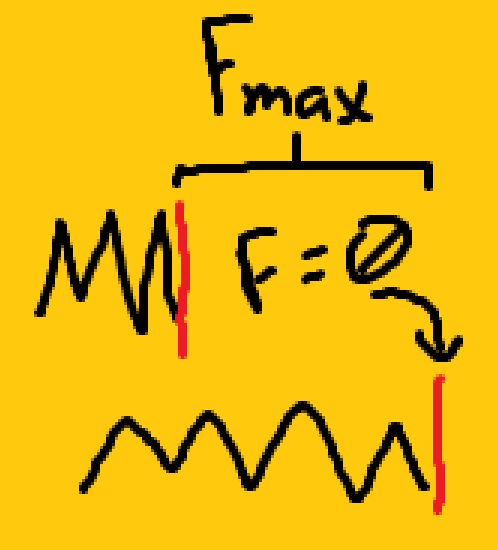 Fmax
F = Ø